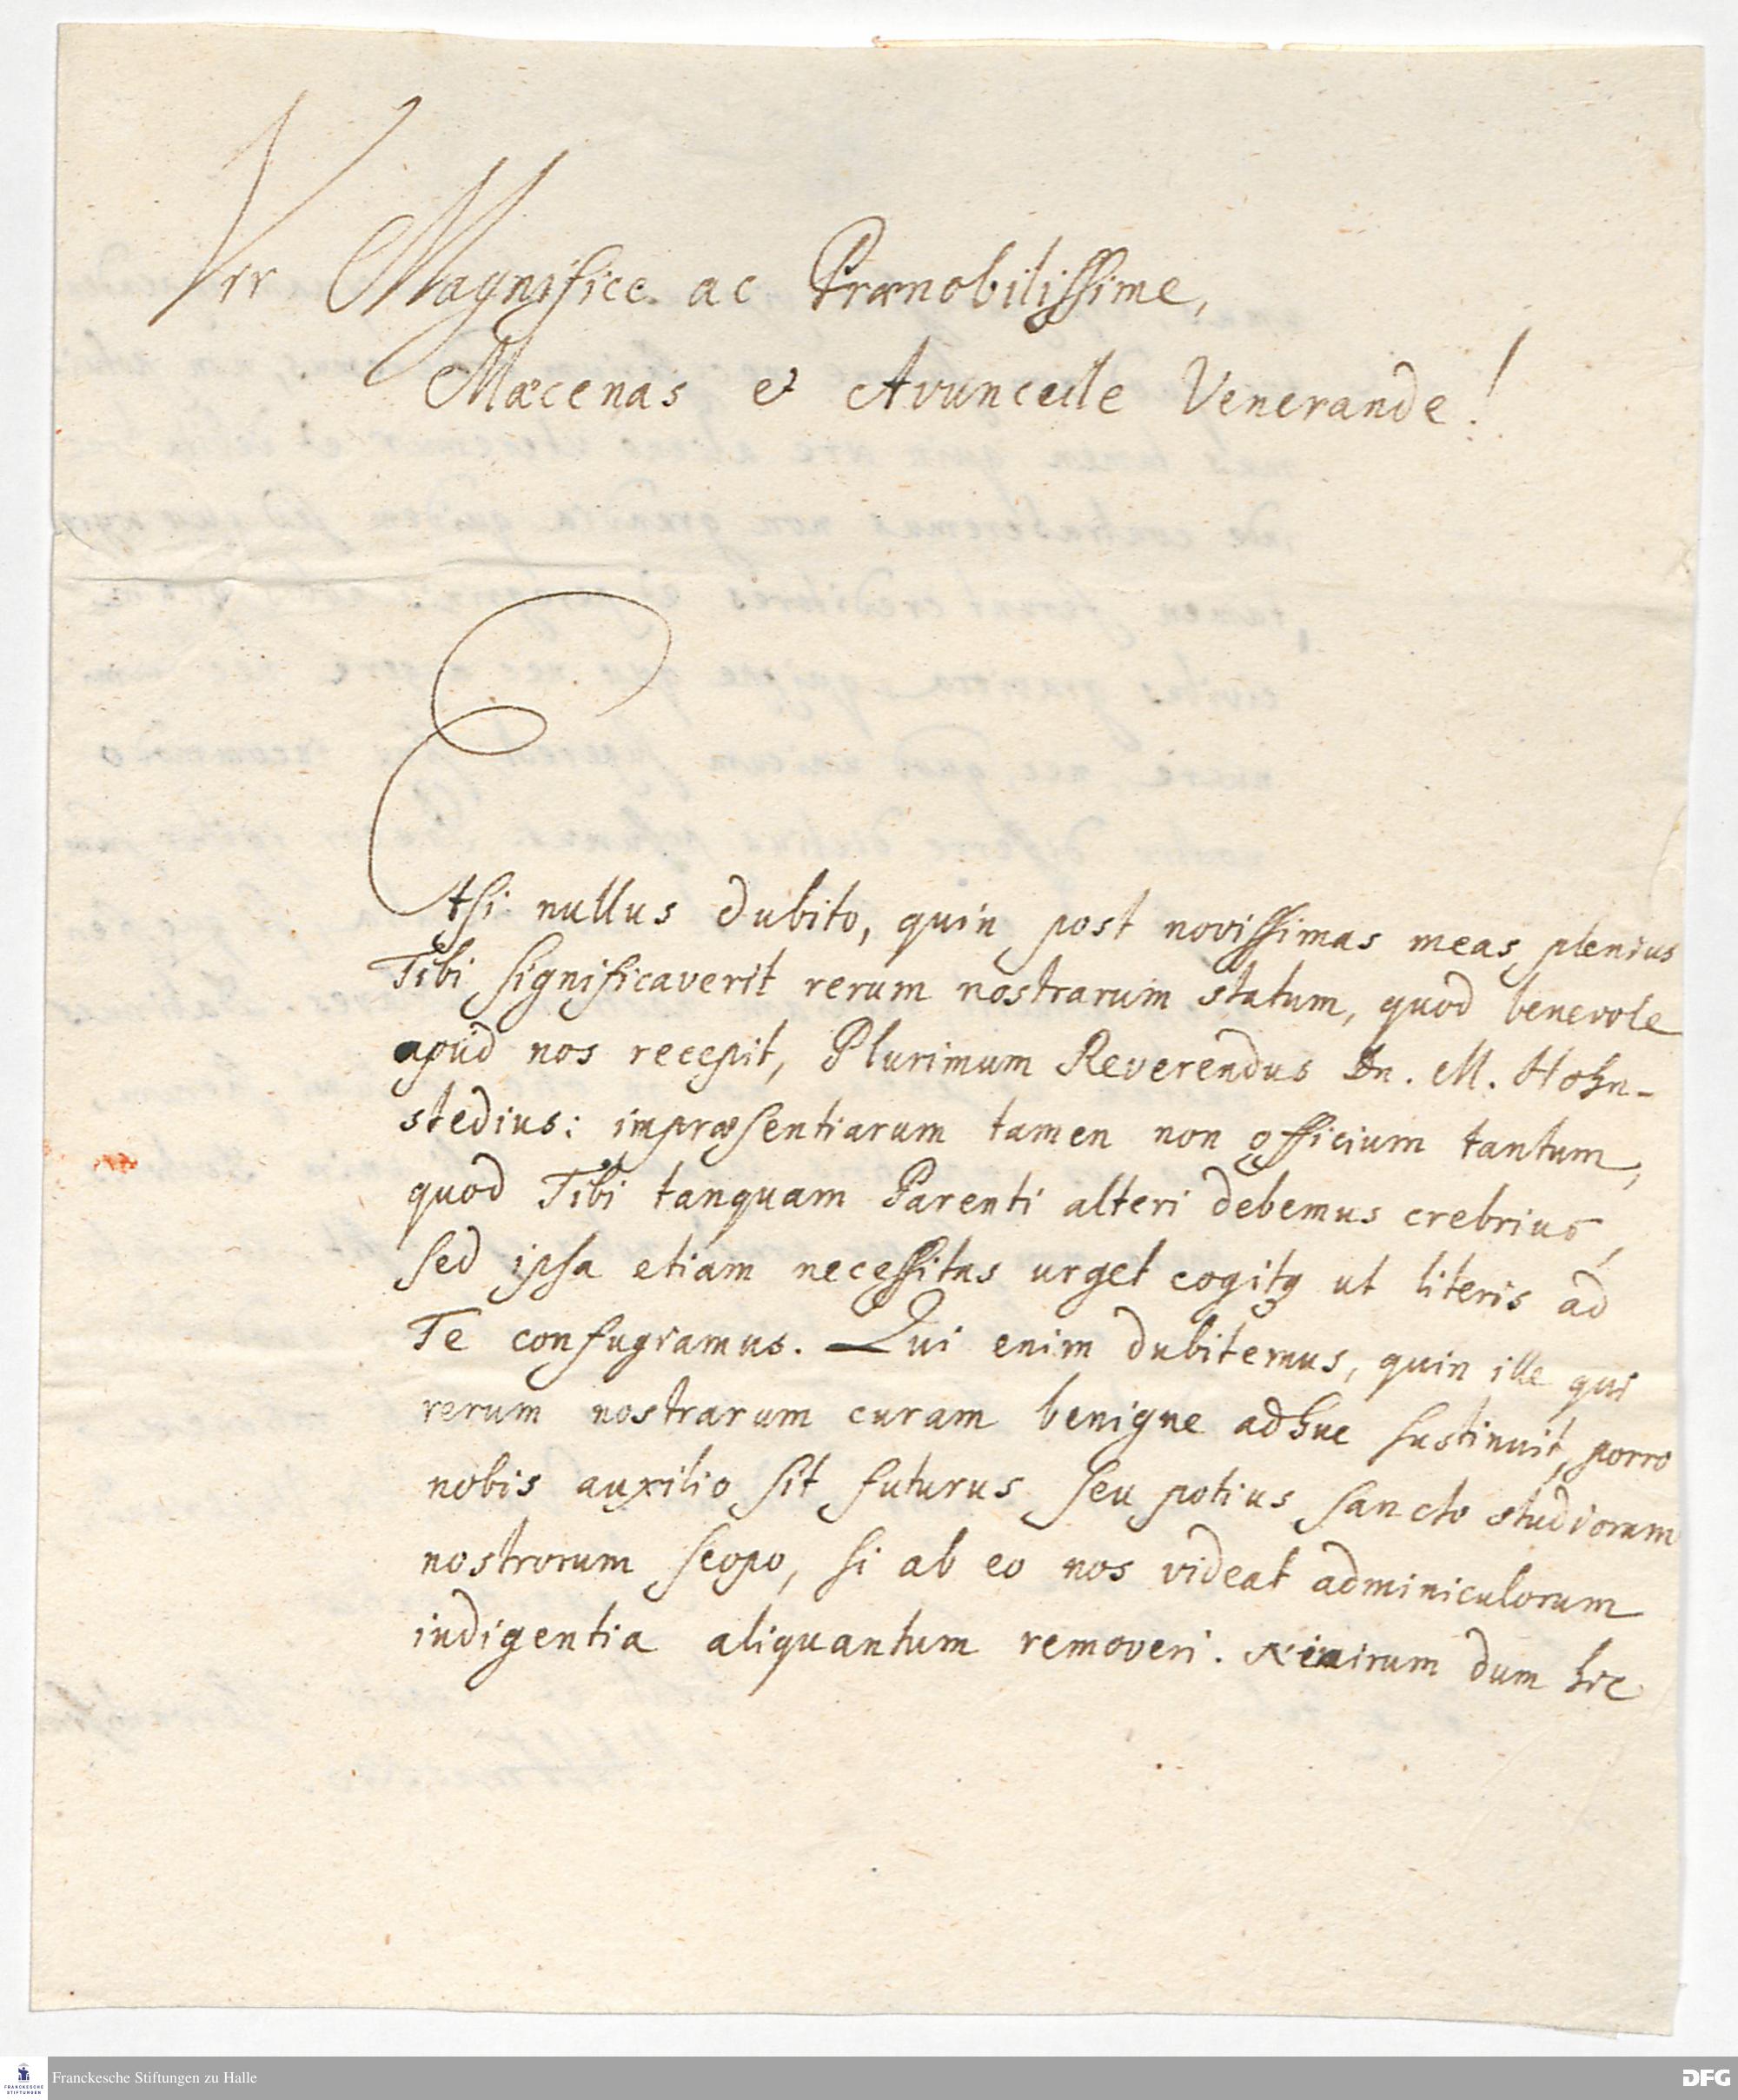 Vir Magnifice ac Prænobilissime,
Mæcenas et Avuncule Venerande!
Etsi nullus dubito, quin post novissimas meas plenius
Tibi significaverit rerum nostrarum statum, quod benevole
apud nos recepit, Plurimum Reverendus Dn. M. Hohn-
stedius: impræsentiarum tamen non officium tantum,
quod Tibi tanquam Parenti alteri debemus crebrius,
sed ipsa etiam necessitas urget cogitq ut literis ad
Te confugiamus. Qui enim dubitemus, quin ille qui
rerum nostrarum curam benigne adhuc sustinuit, porro
nobis auxilio sit futurus seu potius sancto studiorum
nostrorum scopo, si ab eo nos videat adminiculorum
indigentia aliquantum removeri. Nimirum dum hic
Franckesche Stiftungen zu Halle
FRANCKESCHE
STIFTUNGEN
DFG